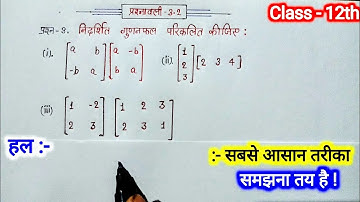 प्रश्नावली-3.2
Class - 12th
प्रश्न-3. निदर्शित गुणनफल परिकलित कीजिए :
(i). [a b -b a] [a -b b a] (ii) [1 2 3] [2 3 4]
(iii) [1 -2 2 3] [1 2 3 2 3 1]
हल :-
:- सबसे आसान तरीका
समझना तय है !